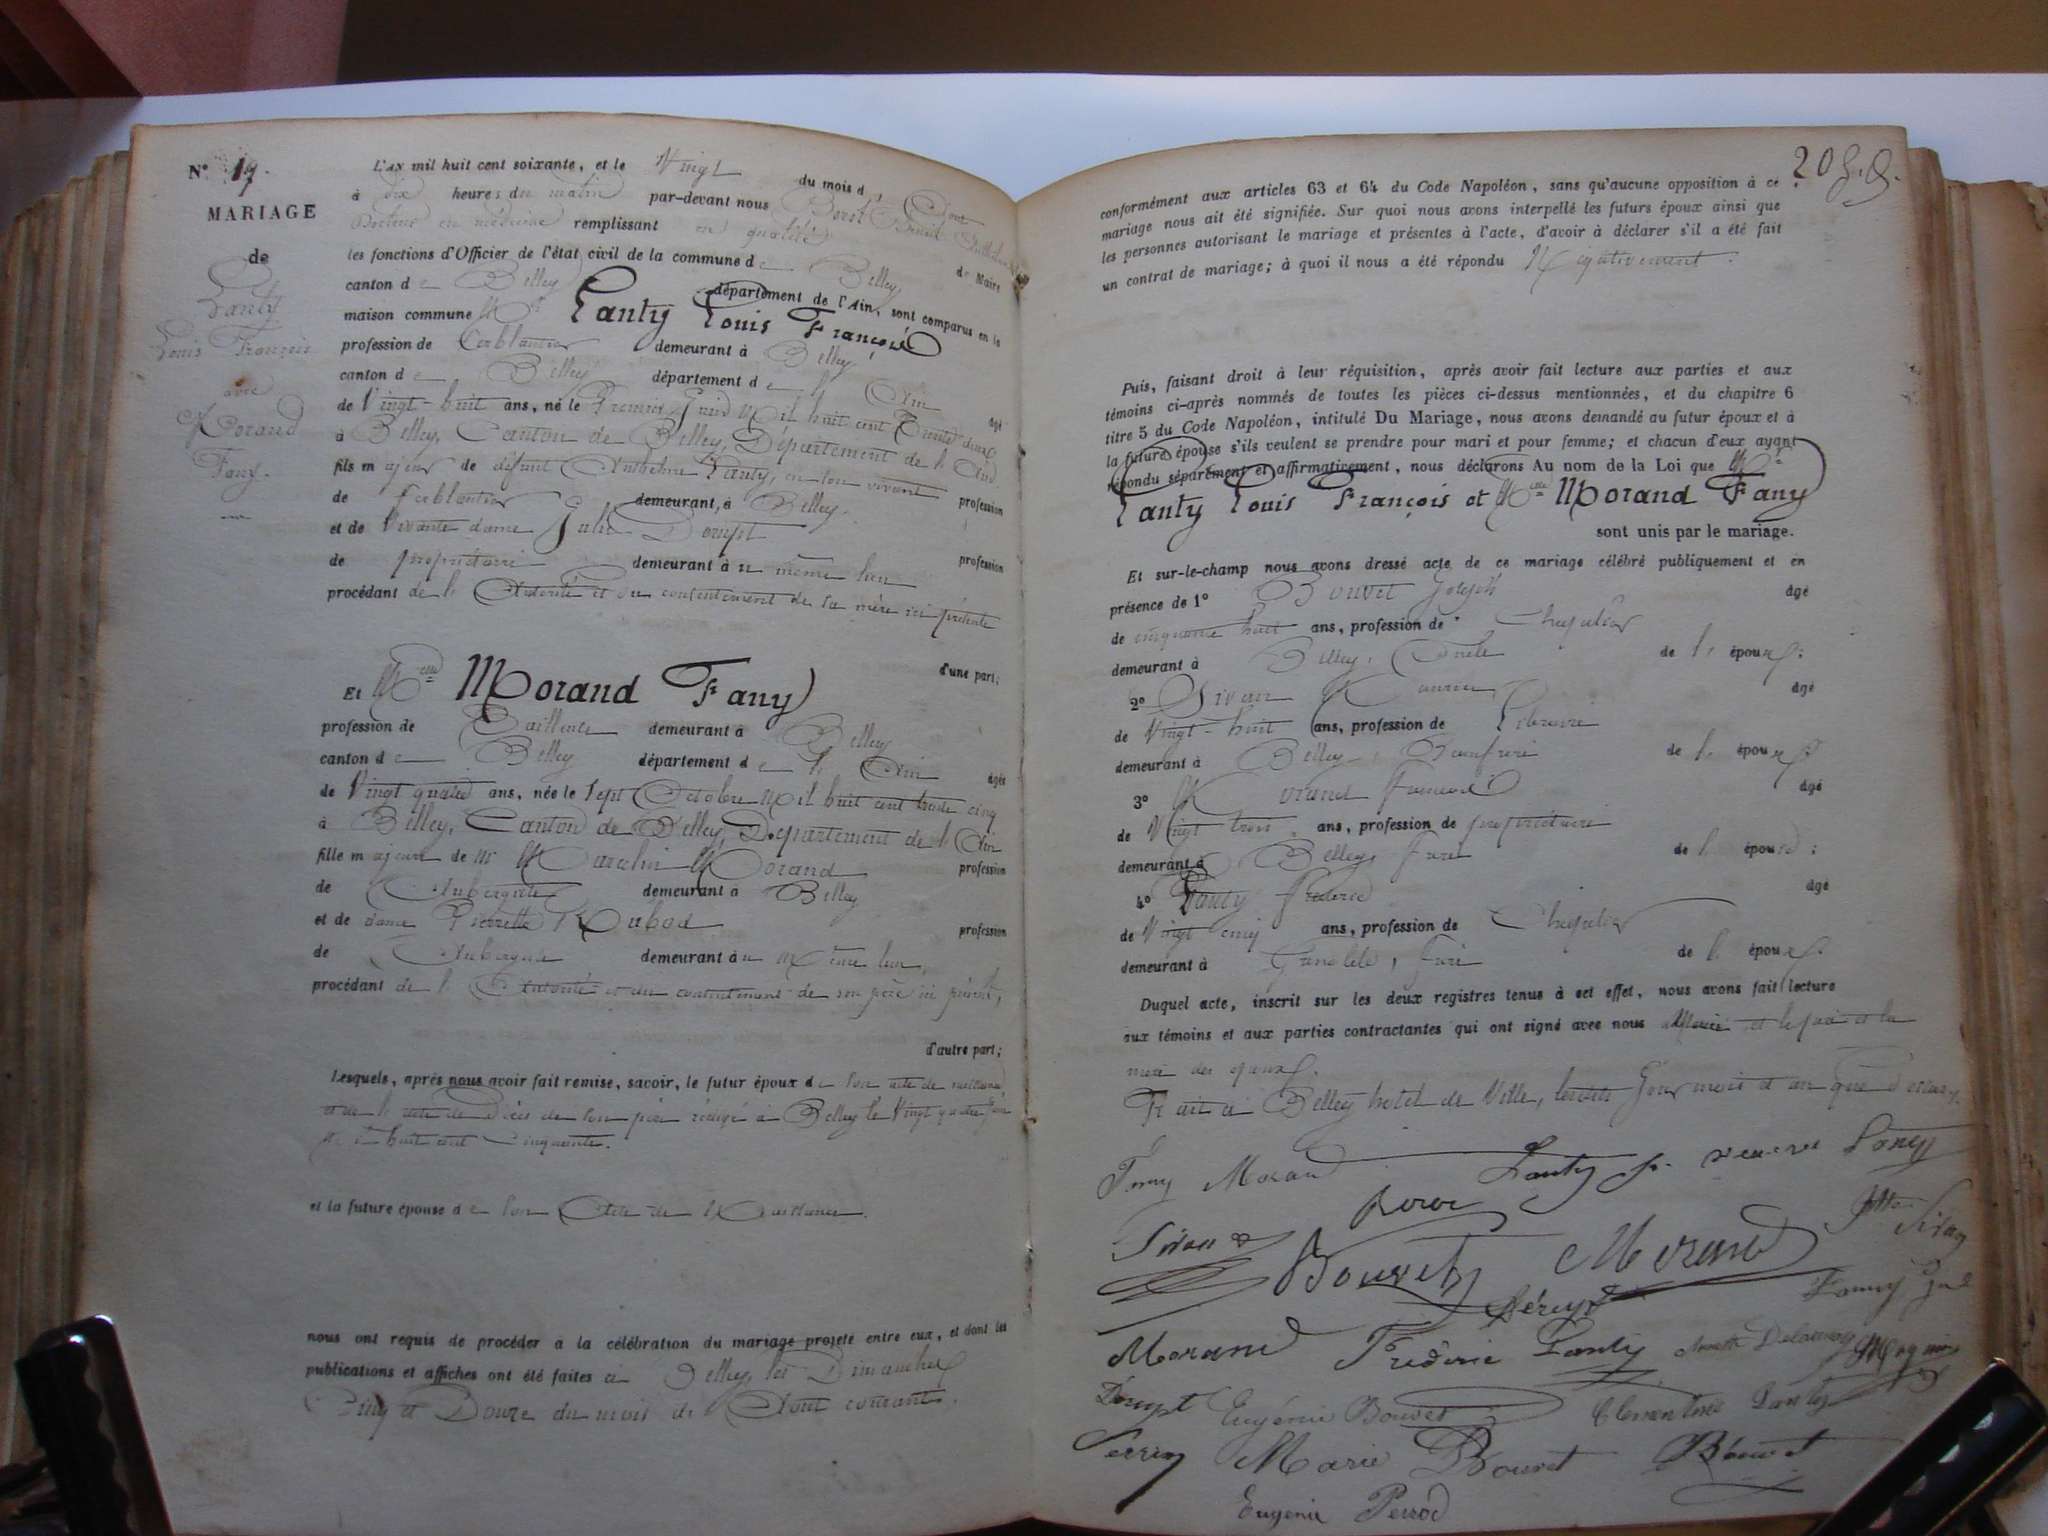 N° 19.
MARIAGE
de
Lanty
Louis François
avec
Morand
Fany.
L'AN mil huit cent soixante, et le Vingt du mois d'Aout
à dix heures du matin par-devant nous
Docteur en médecine remplissant en qualité de Maire
les fonctions d'Officier de l'état civil de la commune de Belley
canton de Belley département de l'Ain, sont comparus en la
maison commune Mr Lanty Louis François
profession de ferblantier demeurant à Belley
canton de Belley département de l'Ain âgé
de Vingt-huit ans, né le Premier Juin Mil huit cent Trente deux
à Belley, Canton de Belley, Département de l'Ain
fils majeur de défunt Anthelme Lanty, en son vivant profession
de ferblantier demeurant, à Belley.
et de vivante dame Julie Dorupt profession
de propriétaire demeurant à u même lieu
procédant de l'Autorité et du consentement de sa mère ici présente
d'une part;
Et Melle Morand Fany
profession de Tailleuse demeurant à Belley
canton de Belley département de l'Ain âgée
de Vingt quatre ans, née le Sept Octobre Mil huit cent trente cinq
à Belley, Canton de Belley, Département de l'Ain
fille majeure de Mr Marcelin Morand profession
de Aubergiste demeurant à Belley
et de dame Pierrette profession
de Aubergiste demeurant à u même lieu,
procédant de l'Autorité et du consentement de son père ici présent,
d'autre part;
Lesquels, après nous avoir fait remise, savoir, le futur époux de son acte de naissance
et de l'acte de Décès de son père rédigé à Belley le Vingt quatre
Mil huit cent cinquante.
et la future épouse de son Acte de Naissance.
nous ont requis de procéder à la célébration du mariage projeté entre eux, et dont les
publications et affiches ont été faites à Belley les Dimanches
Cinq et Douze du mois de Aout courant.
20
conformément aux articles 63 et 64 du Code Napoléon, sans qu'aucune opposition à ce
mariage nous ait été signifiée. Sur quoi nous avons interpellé les futurs époux ainsi que
les personnes autorisant le mariage et présentes à l'acte, d'avoir à déclarer s'il a été fait
un contrat de mariage; à quoi il nous a été répondu Négativement.
Puis, faisant droit à leur réquisition, après avoir fait lecture aux parties et aux
témoins ci-après nommés de toutes les pièces ci-dessus mentionnées, et du chapitre 6
titre 5 du Code Napoléon, intitulé Du Mariage, nous avons demandé au futur époux et à
la future épouse s'ils veulent se prendre pour mari et pour femme; et chacun d'eux ayant
répondu séparément et affirmativement, nous déclarons Au nom de la Loi que Mr
Lanty Louis François et Melle Morand Fany
sont unis par le mariage.
Et sur-le-champ nous avons dressé acte de ce mariage célébré publiquement et en
présence de 1° Bouvet Joseph âgé
de cinquante huit ans, profession de Chapelier
demeurant à Belley, Oncle de l'époux;
2° Sivan âgé
de Vingt-huit ans, profession de Libraire
demeurant à Belley, Beaufrère de l'époux;
3° Morand âgé
de Vingt trois ans, profession de propriétaire
demeurant à Belley, Frère de l'épouse;
4° Lanty Frédéric âgé
de Vingt cinq ans, profession de Chapelier
demeurant à Grenoble, Frère de l'époux.
Duquel acte, inscrit sur les deux registres tenus à cet effet, nous avons fait lecture
aux témoins et aux parties contractantes qui ont signé avec nous Maire et le père et la
mère des époux.
Fait à Belley hôtel de Ville, lesdits Jour mois et an que dessus.
Fany Morand Lanty fr. veuve Lanty
Sivan Bouvet Morand Sivan
Fanny
Morand Frédéric Lanty
Dorupt Eugénie Bouvet Clémentine Lanty
Perrin Marie Bouvet Bouvet
Eugénie Perrod